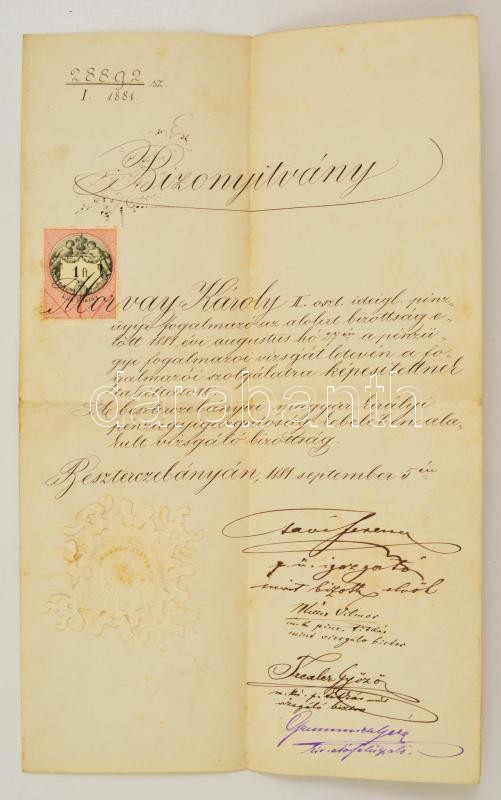 28892 sz.
I. 1881.
Bizonyitvány
1 fl
Morvay Károly II. oszt. ideigl. pénz-
ügyi fogalmazó az alolirt bizottság e-
lőtt 1881 évi augustus hó a pénzü-
gyi fogalmazói vizsgát letevén a fo-
galmazói szolgálatra képesitettnek
találtatott.
A beszterczebányai magyar királyi
pénzügyigazgatóság kebelében ala-
kult vizsgáló bizottság.
Beszterczebányán, 1881 september 5 én
darabanth
p. ü. igazgató
mint bizott. elnök
Vilmos
m. k. pénz. titkár
mint vizsgáló biztos
Győző
m. kir. p. ü. titkár mint
vizsgáló biztos